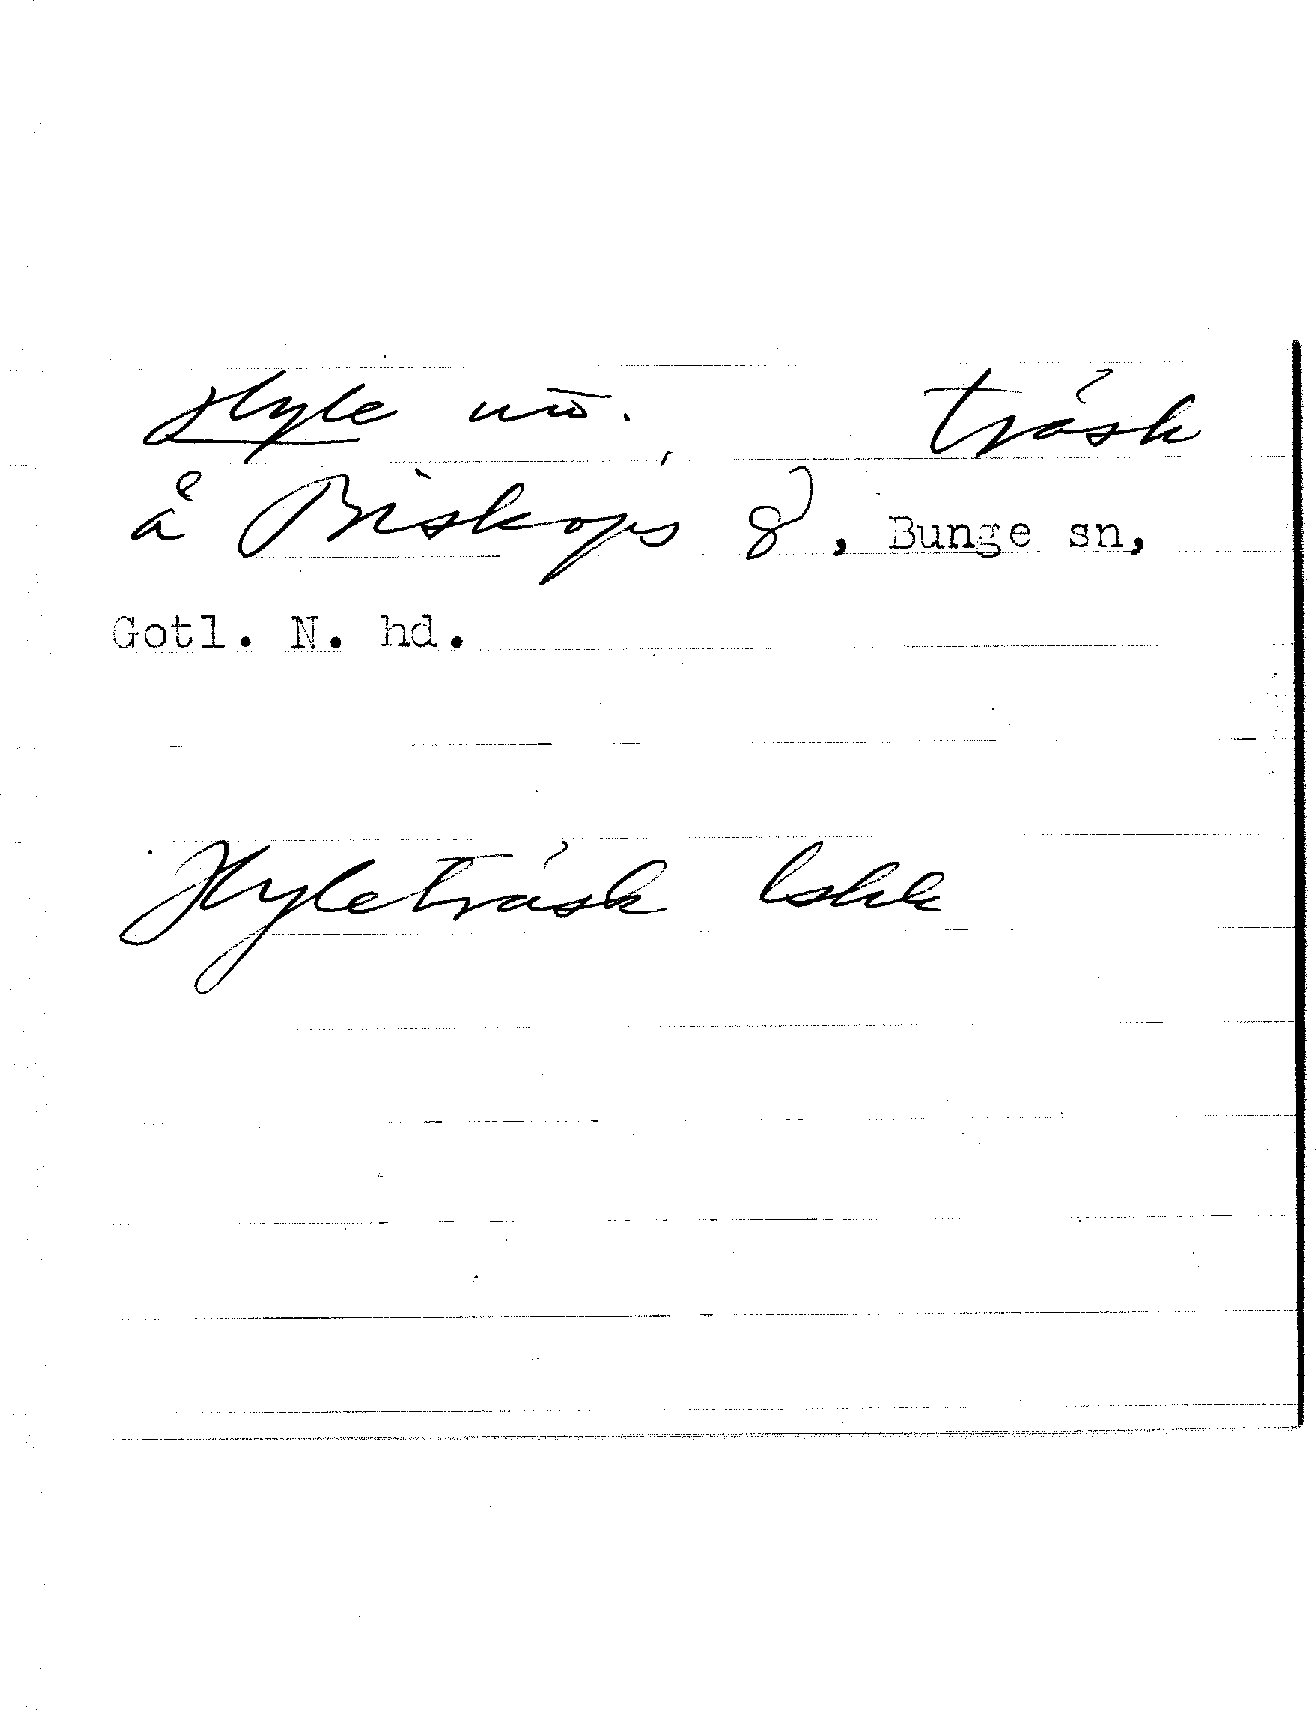 Hyle nō. träsk
å Biskops 8, Bunge sn,
Gotl. N. hd.
Hyleträsk lskk